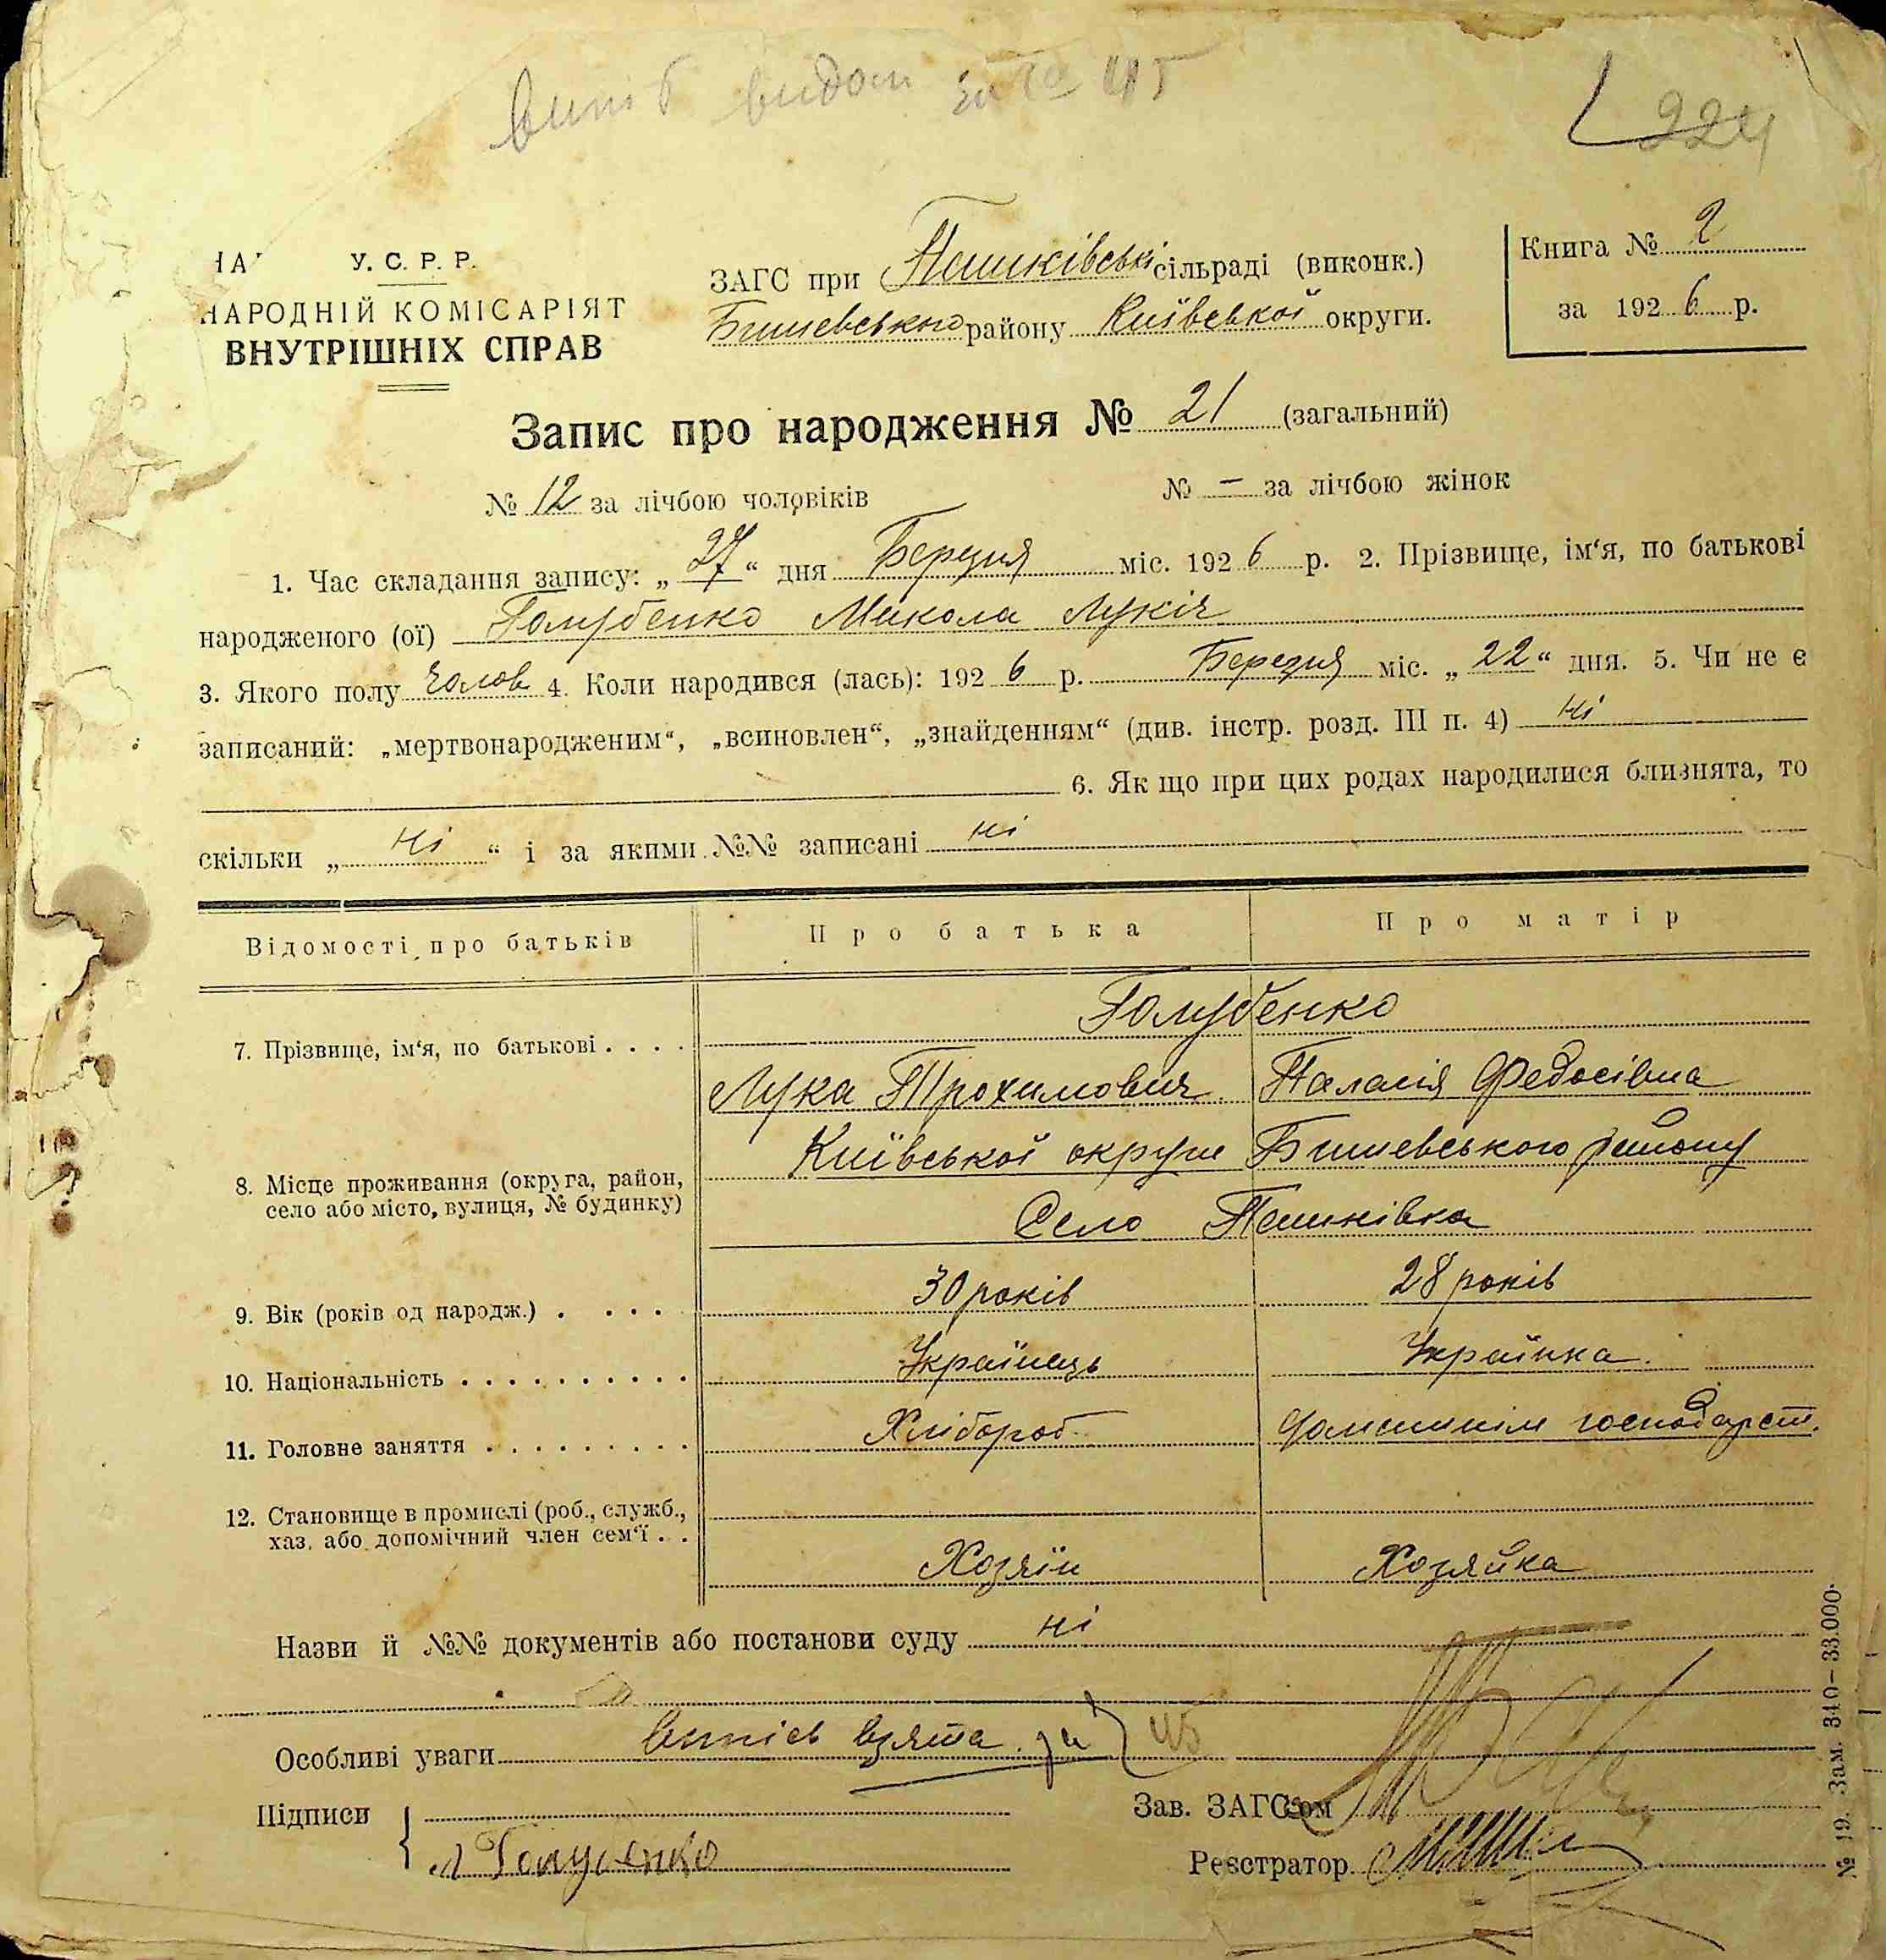 випіс видан за № 45
224
У. С. Р. Р.
НАРОДНІЙ КОМІСАРІЯТ
ВНУТРІШНІХ СПРАВ
ЗАГС при Пашківські сільраді (виконк.)
Бишевського району Київської округи.
Книга № 2
за 1926 р.
Запис про народження № 21 (загальний)
№ 12 за лічбою чоловіків № – за лічбою жінок
1. Час складання запису: „27“ дня Березня міс. 1926 р. 2. Прізвище, ім‘я, по батькові
народженого (ої) Голубенко Микола Лукіч
3. Якого полу чолов 4. Коли народився (лась): 1926 р. Березня міс. „22“ дня. 5. Чи не є
записаний: „мертвонародженим“, „всиновлен“, „знайденням“ (див. інстр. розд. III п. 4) ні
6. Як що при цих родах народилися близнята, то
скільки „ ні “ і за якими №№ записані ні
Відомості про батьків Про батька Про матір
Голубенко
7. Прізвище, ім‘я, по батькові . . . .
Лука Трохимович Палагія Федосівна
Київської округи Бишевського району
8. Місце проживання (округа, район,
село або місто, вулиця, № будинку)
Село Пашківка
9. Вік (років од народж.) . . . . 30 років 28 років
10. Національність . . . . . . . . . . Українець Українка.
11. Головне заняття . . . . . . . . . Хлібороб домашнім господарст.
12. Становище в промислі (роб., служб.,
хаз. або допомічний член сем‘ї . . .
Хозяїн Хозяйка
Назви й №№ документів або постанови суду ні
Особливі уваги випісь взята за 45
Підписи
Л Голубенко
Зав. ЗАГС‘ом
Реєстратор
№ 19. Зам. 340–33.000.